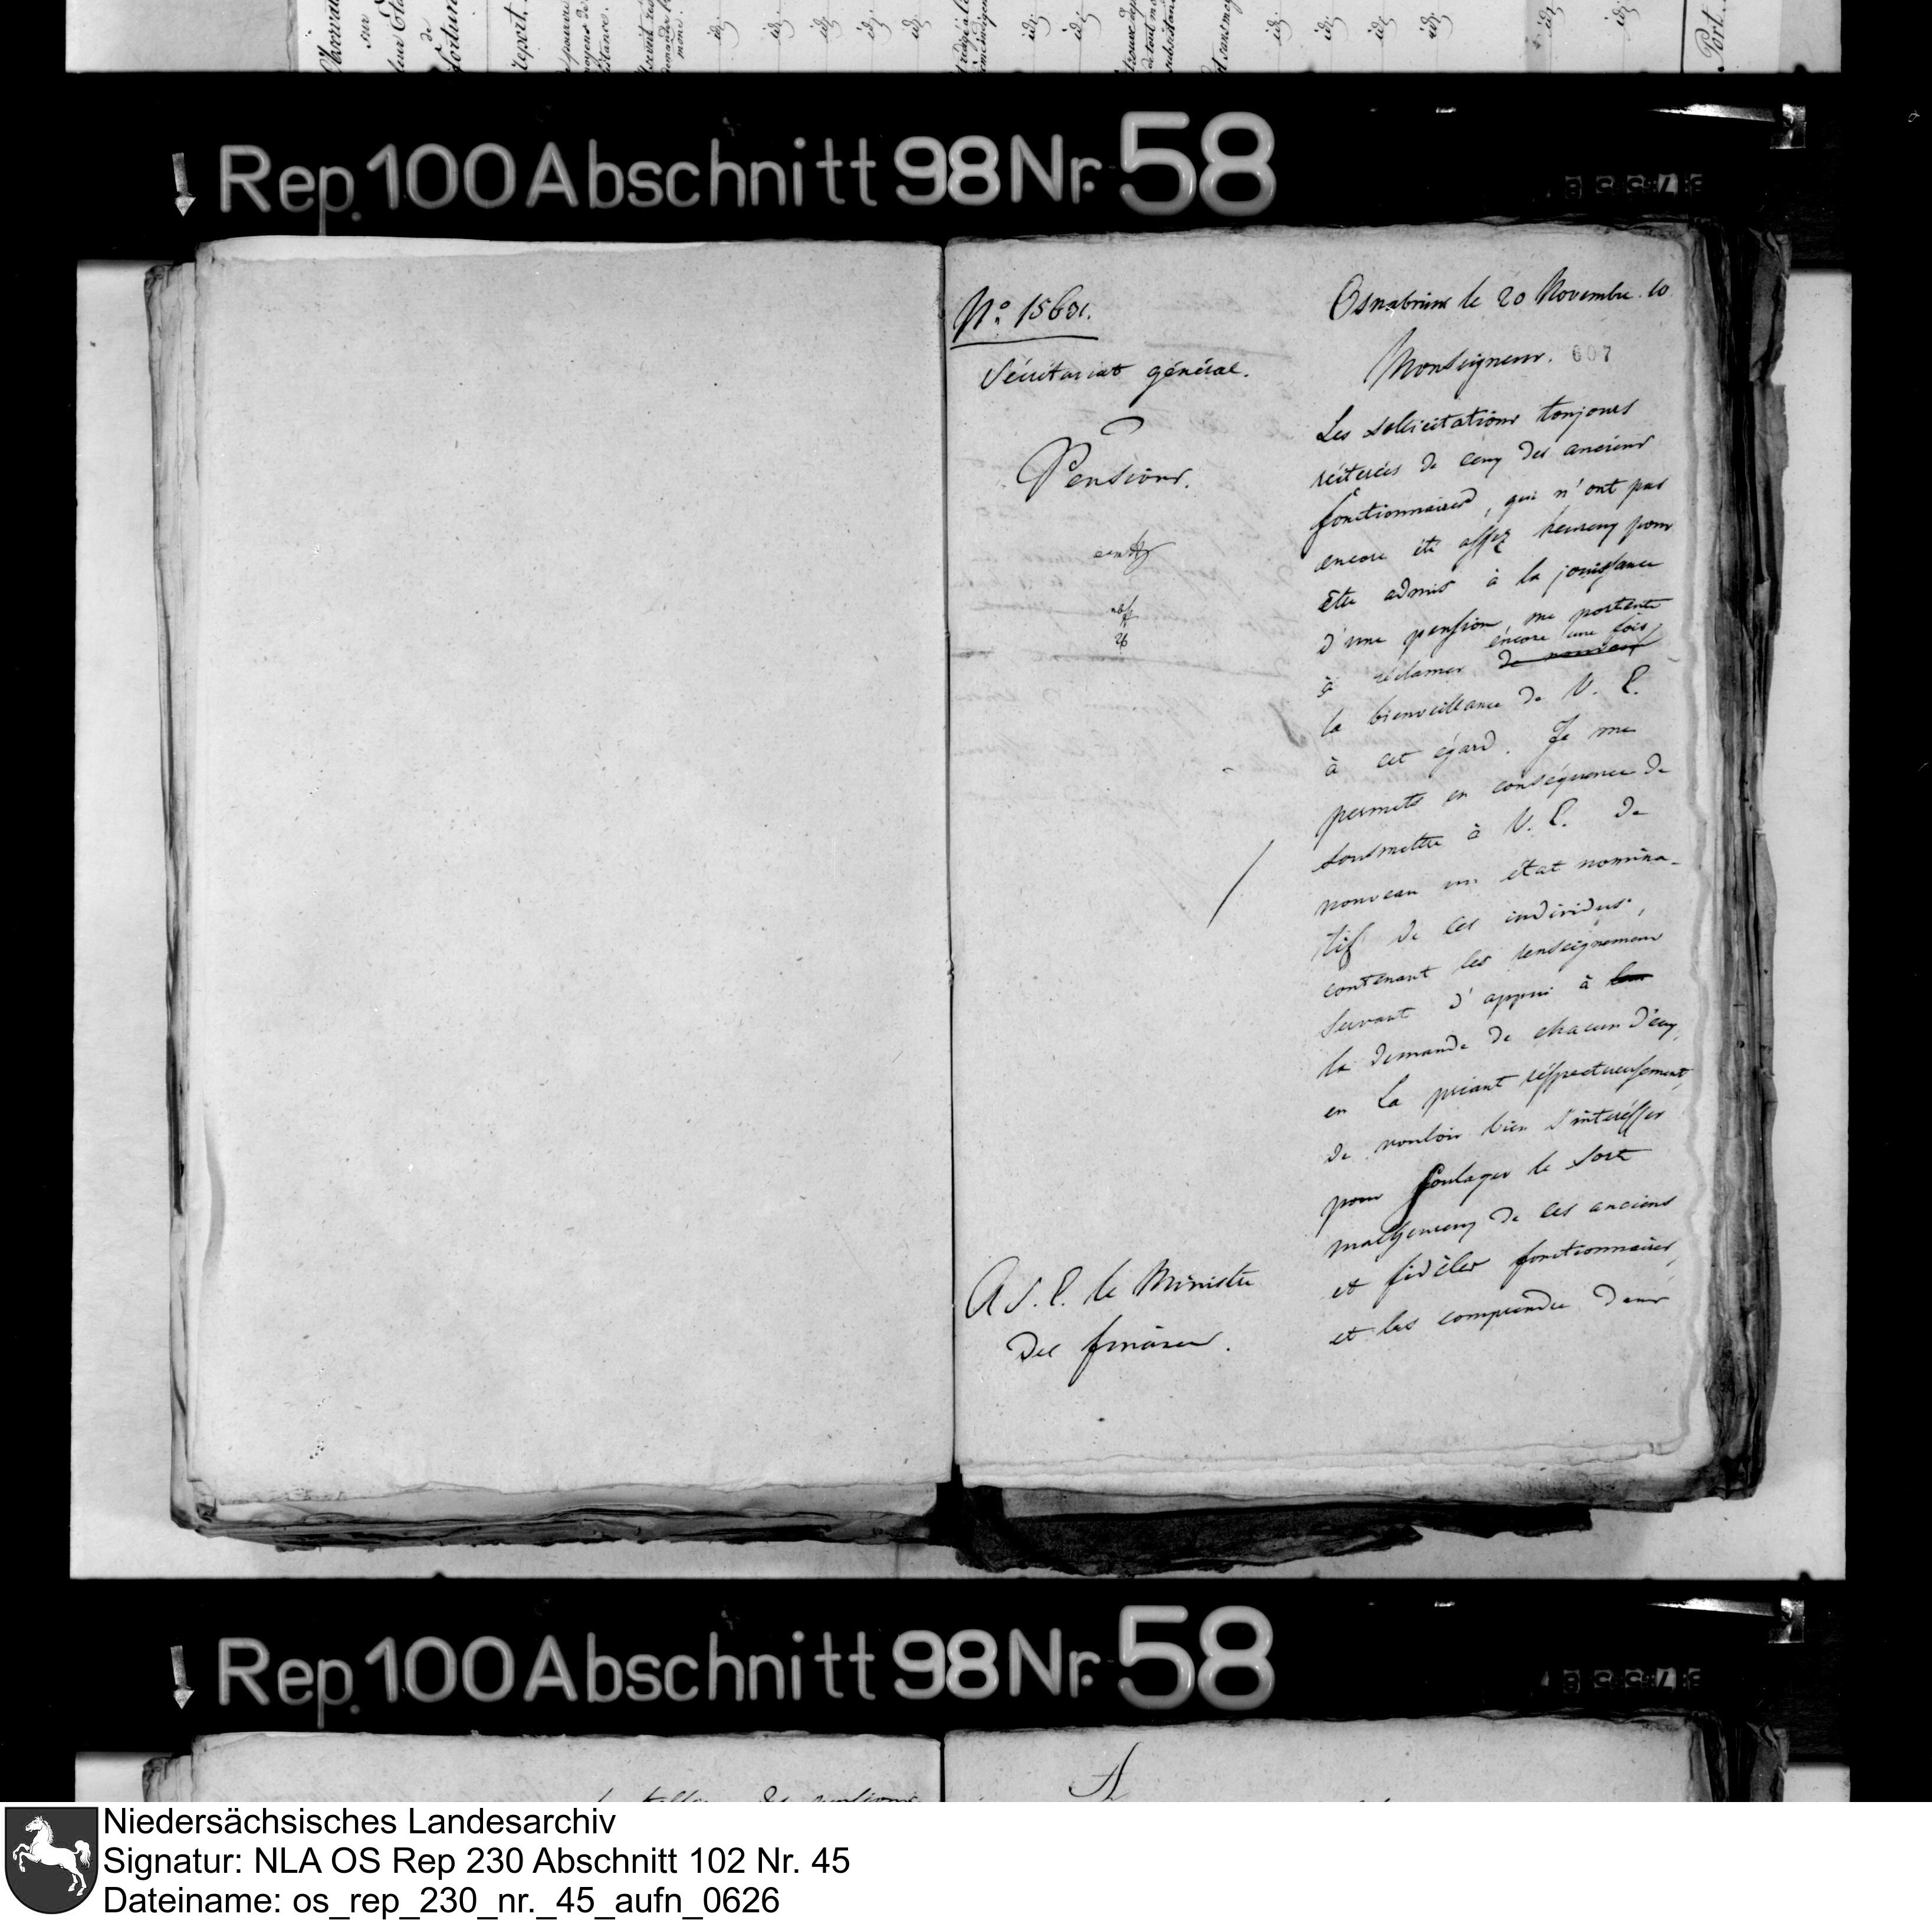 Rep. 100 Abschnitt 98 Nr. 58
No. 15601.
Sécrétariat général.
Pensions.
A S. E. le Ministre
des finances.
Osnabrück le 20 Novembre 10
Monseigneur.
607
Les sollicitations toujours
réiterées de ceux des anciens
fonctionnaires, qui n'ont pas
encore été assez heureux pour
être admis à la jouissance
d'une pension, me portent
à réclamer de nouveau encore une fois
la bienveillance de V. E.
à cet égard. Je me
permets en conséquence de
soumettre à V. E. de
nouveau un état nomina-
tif de ces individus,
contenant les renseignemens
servant d'appui à leur
la demande de chacun d'eux,
en La priant réspectueusement,
de vouloir bien s'intéresser
pour soulager le sort
malheureux de ces anciens
et fidèles fonctionnaires,
et les comprendre dans
Rep. 100 Abschnitt 98 Nr. 58
Niedersächsisches Landesarchiv
Signatur: NLA OS Rep 230 Abschnitt 102 Nr. 45
Dateiname: os_rep_230_nr._45_aufn_0626